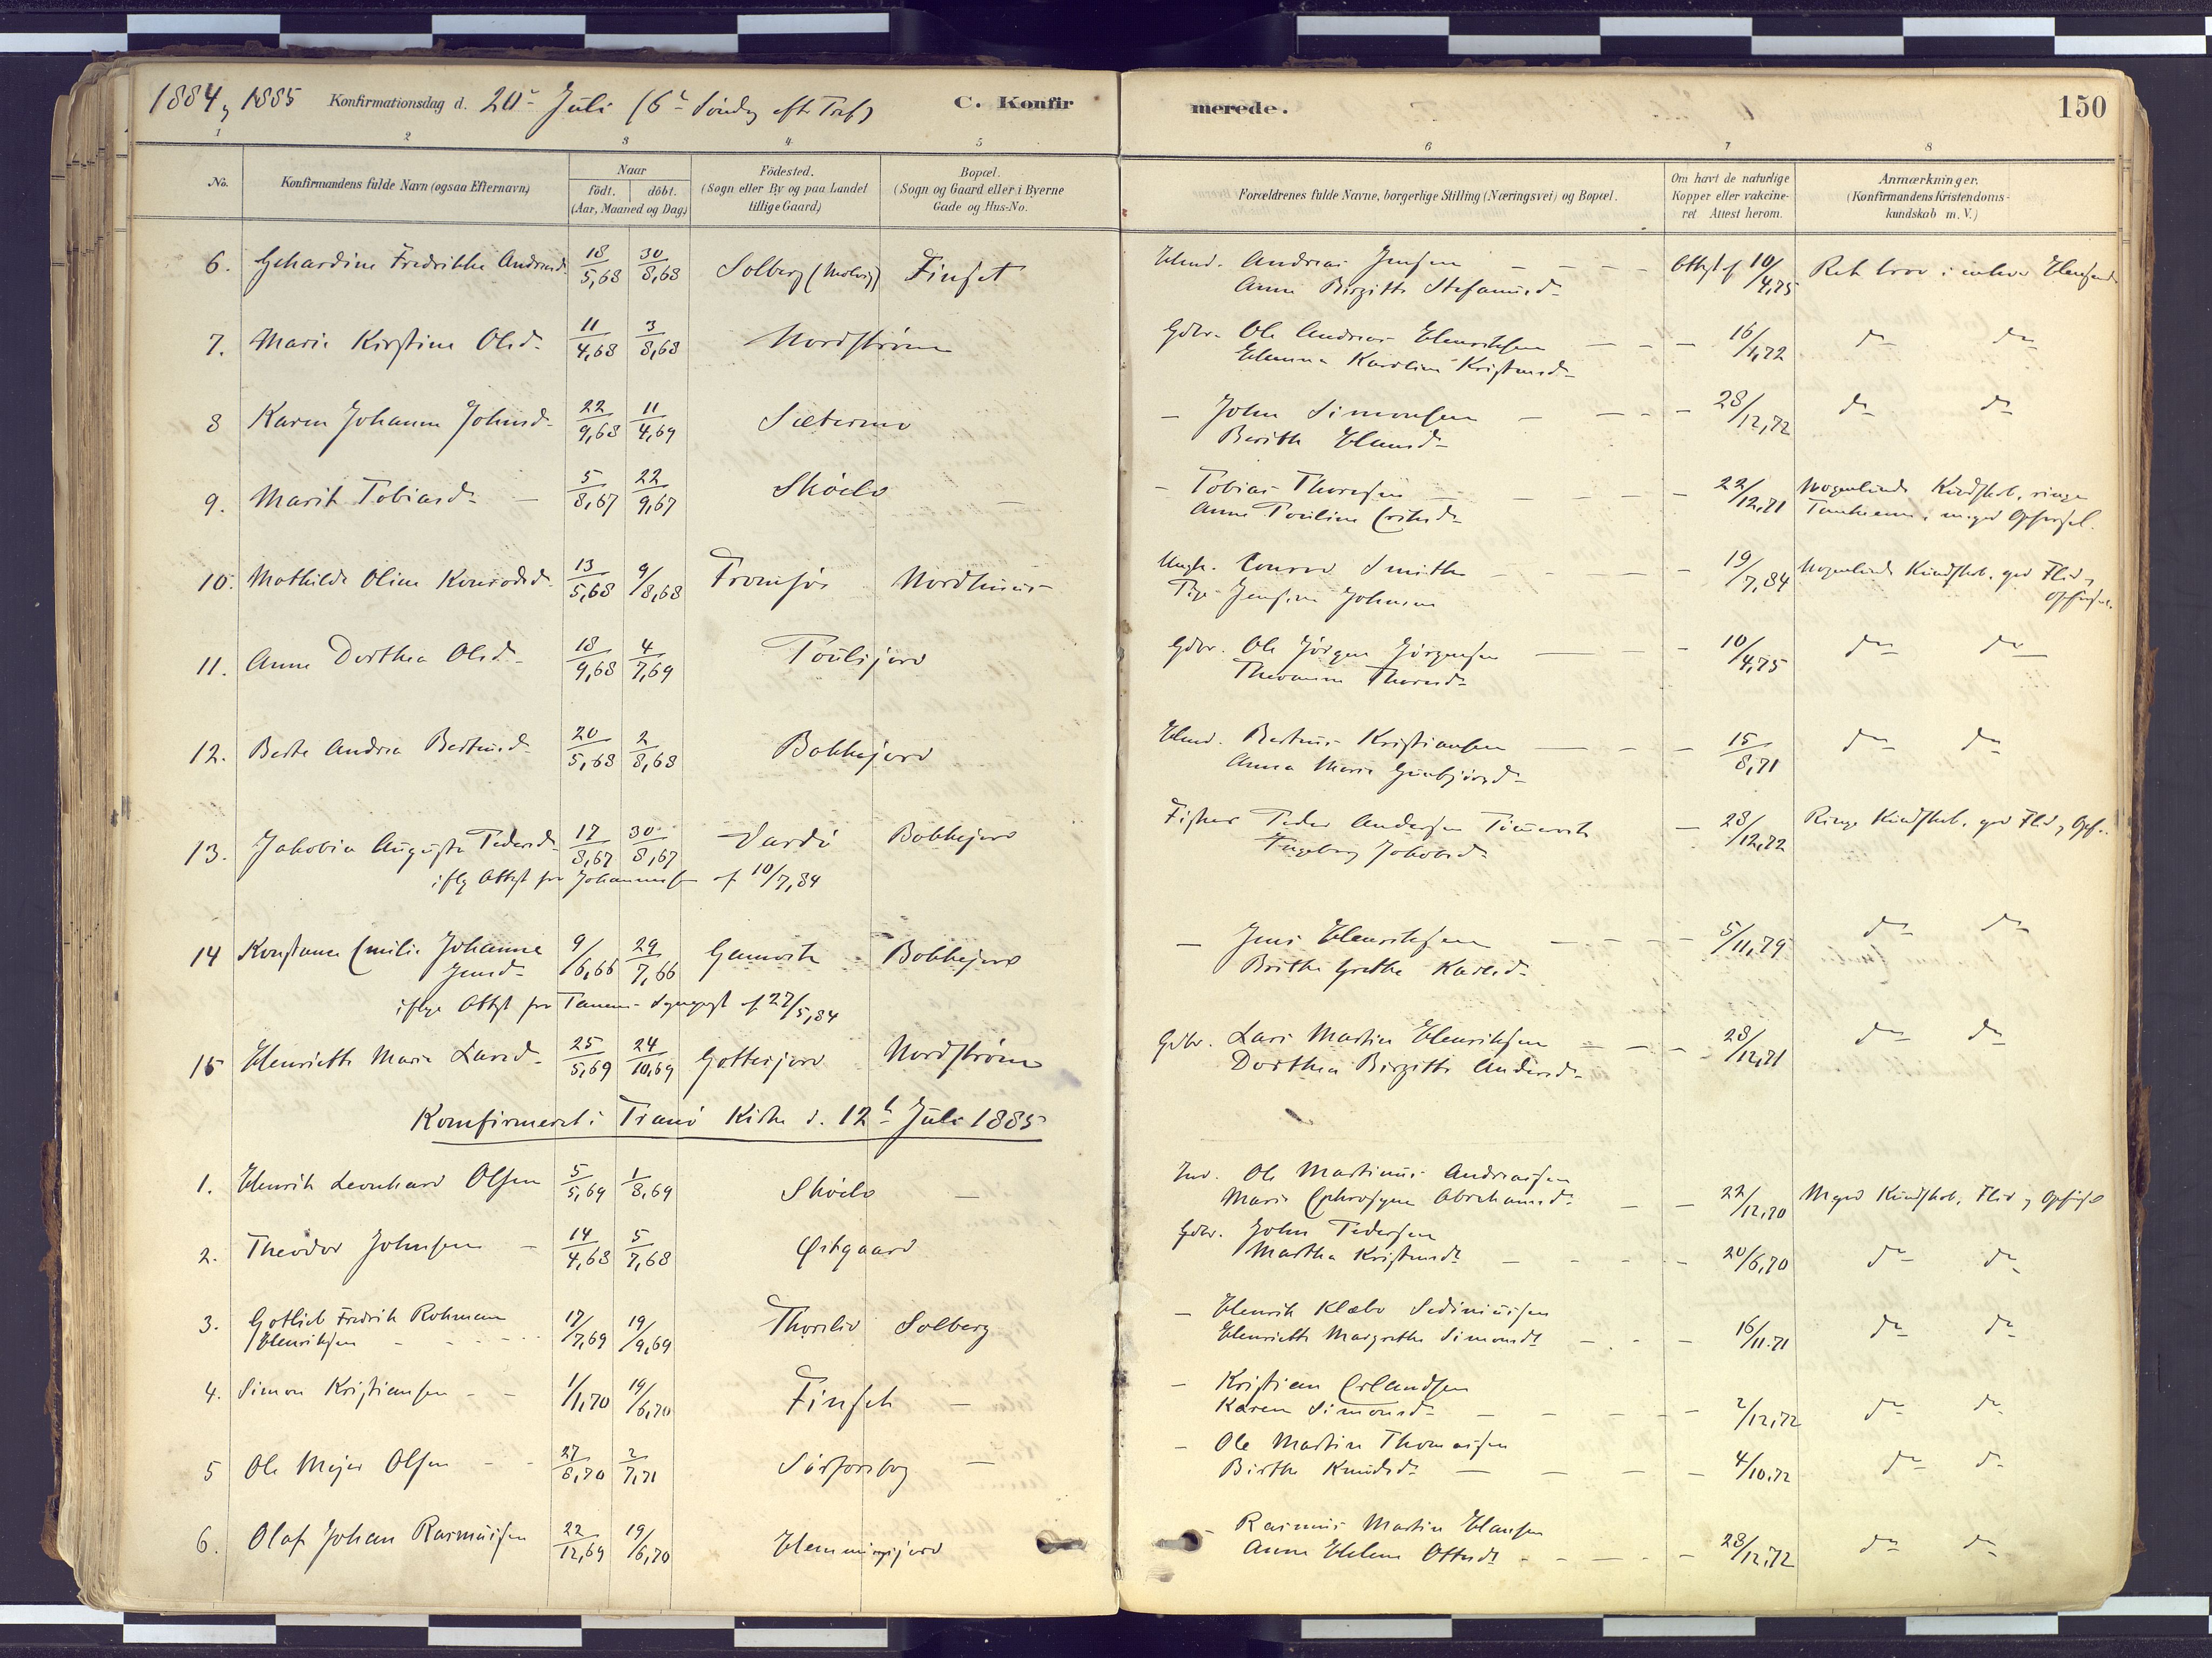 1884, 1885 Konfirmationsdag d. 20de Juli (6te Søndag eft. Tref.) C. Konfir merede. 150
1 2 3 4 5 6 7 8
No. Konfirmandens fulde Navn (ogsaa Efternavn) Naar født. døbt. (Aar, Maaned og Dag) Födested. (Sogn eller By og paa Landet tillige Gaard) Bopæl. (Sogn og Gaard eller i Byerne Gade og Hus-No. Forældrenes fulde Navne, borgerlige Stilling (Næringsvei) og Bopæl. Om havt de naturlige Kopper eller vakcineret Attest herom. Anmærkninger. (Konfirmandens Kristendomskundskab m. V.)
6. Gehardine Fredrikke Andreasd. 18/5,68 30/8,68 Solberg Finset Andreas Jensen
Anne Birgitte Stefanusd. 10/4,75
7. Marie Kirstine Olsd. 11/4,68 3/8,68 Nordstrøm Gdbr. Ole Andreas Henriksen — 16/1,72 do do
Hanna Karoline Kristensd.
8 Karen Johanna Johnsd. 22/9,68 11/4,69 Sætermo — John Simonsen — 28/12,72 do do
Berith Hansd.
9. Marit Tobiasd. — 5/8,67 22/9,67 Skøelv — — Tobias Thoresen — 22/12,71 Nogenlunde Kundskab, ringe
Anne Pouline
10. Mathilde Oline Konradsd. 13/5,68 9/8,68 Tromsø Nordmus Ungk. Conrad Smith — 19/7,84 Nogenlunde Kundskab, god Flid,
Pige Jensine Johnsen Opførsel.
11. Anne Dorthea Olsd. 18/9,68 4/7,69 Poulsjord Gdbr. Ole Jörgen Jörgensen — 10/4,75 do do
12. Berte Andrea Bertusd. 20/5,68 2/8,68 Bokkejord Bertus Kristiansen — 15/8,71 do do
Anna Marie
13. Jakobia Augusta Pedersd. 17/8,67 30/8,67 Vardø Bokkejord Fisker Peder Andersen — 28/12,72 Ringe Kundskab, god Flid, Opf.
Ingeborg Jakobsd.
iflg Attest fra Johannes af 10/7,84
14 Konstance Emilie Johanne 9/6,66 29/7,66 Gamvik Bokkejord — Jens Henriksen — 5/11,79 do do
Jensd. Brithe Grethe
iflge Attest fra Tanens Sognepst af 27/5,84
15 Henriette Marie Larsd. 25/5,69 24/10,69 Gottesjord Nordstrøm Gdbr. Lars Martin Henriksen — 28/12,71 do do
Dorthea Birgitte Andersd.
Komfirmeret i Tranö Kirke d. 12te Juli 1885
1. Henrik Leonhard Olsen 5/5,69 1/8,69 Skøelv — Ind. Ole Martinus Andreassen
Maren Ephrosyne Abrahamsd. — 22/12,70 Meget god Kundskab, Flid og Opførsel
2. Theodor Johnsen — 14/4,68 5/7,68 Østgaard Gdbr. John Pedersen
Martha Kristensdt. — 20/6,70 do do
3. Gotlieb Fredrik Rohmann 17/7,69 19/9,69 Thorslid Solberg — Henrik Klæbo Sediniussen
Henriksen — Henriette Margrethe Simonsdt. — 16/11.71 do do
4. Simon Kristiansen — 1/1,70 19/6,70 Finset — — Kristian Erlandsen
Karen Simonsd. — 2/12,72 do do
5 Ole Mejer Olsen — 27/8,70 2/7,71 Sørforsbog — — Ole Martin Thomassen
Birthe Knudsdt. — 4/10.72 do do
6. Olaf Johan Rasmussen 22/12,69 19/6,70 Hemmingsjord — Rasmus Martin Hansen
Anne Helene Ottesdt. — 28/12,72 do do